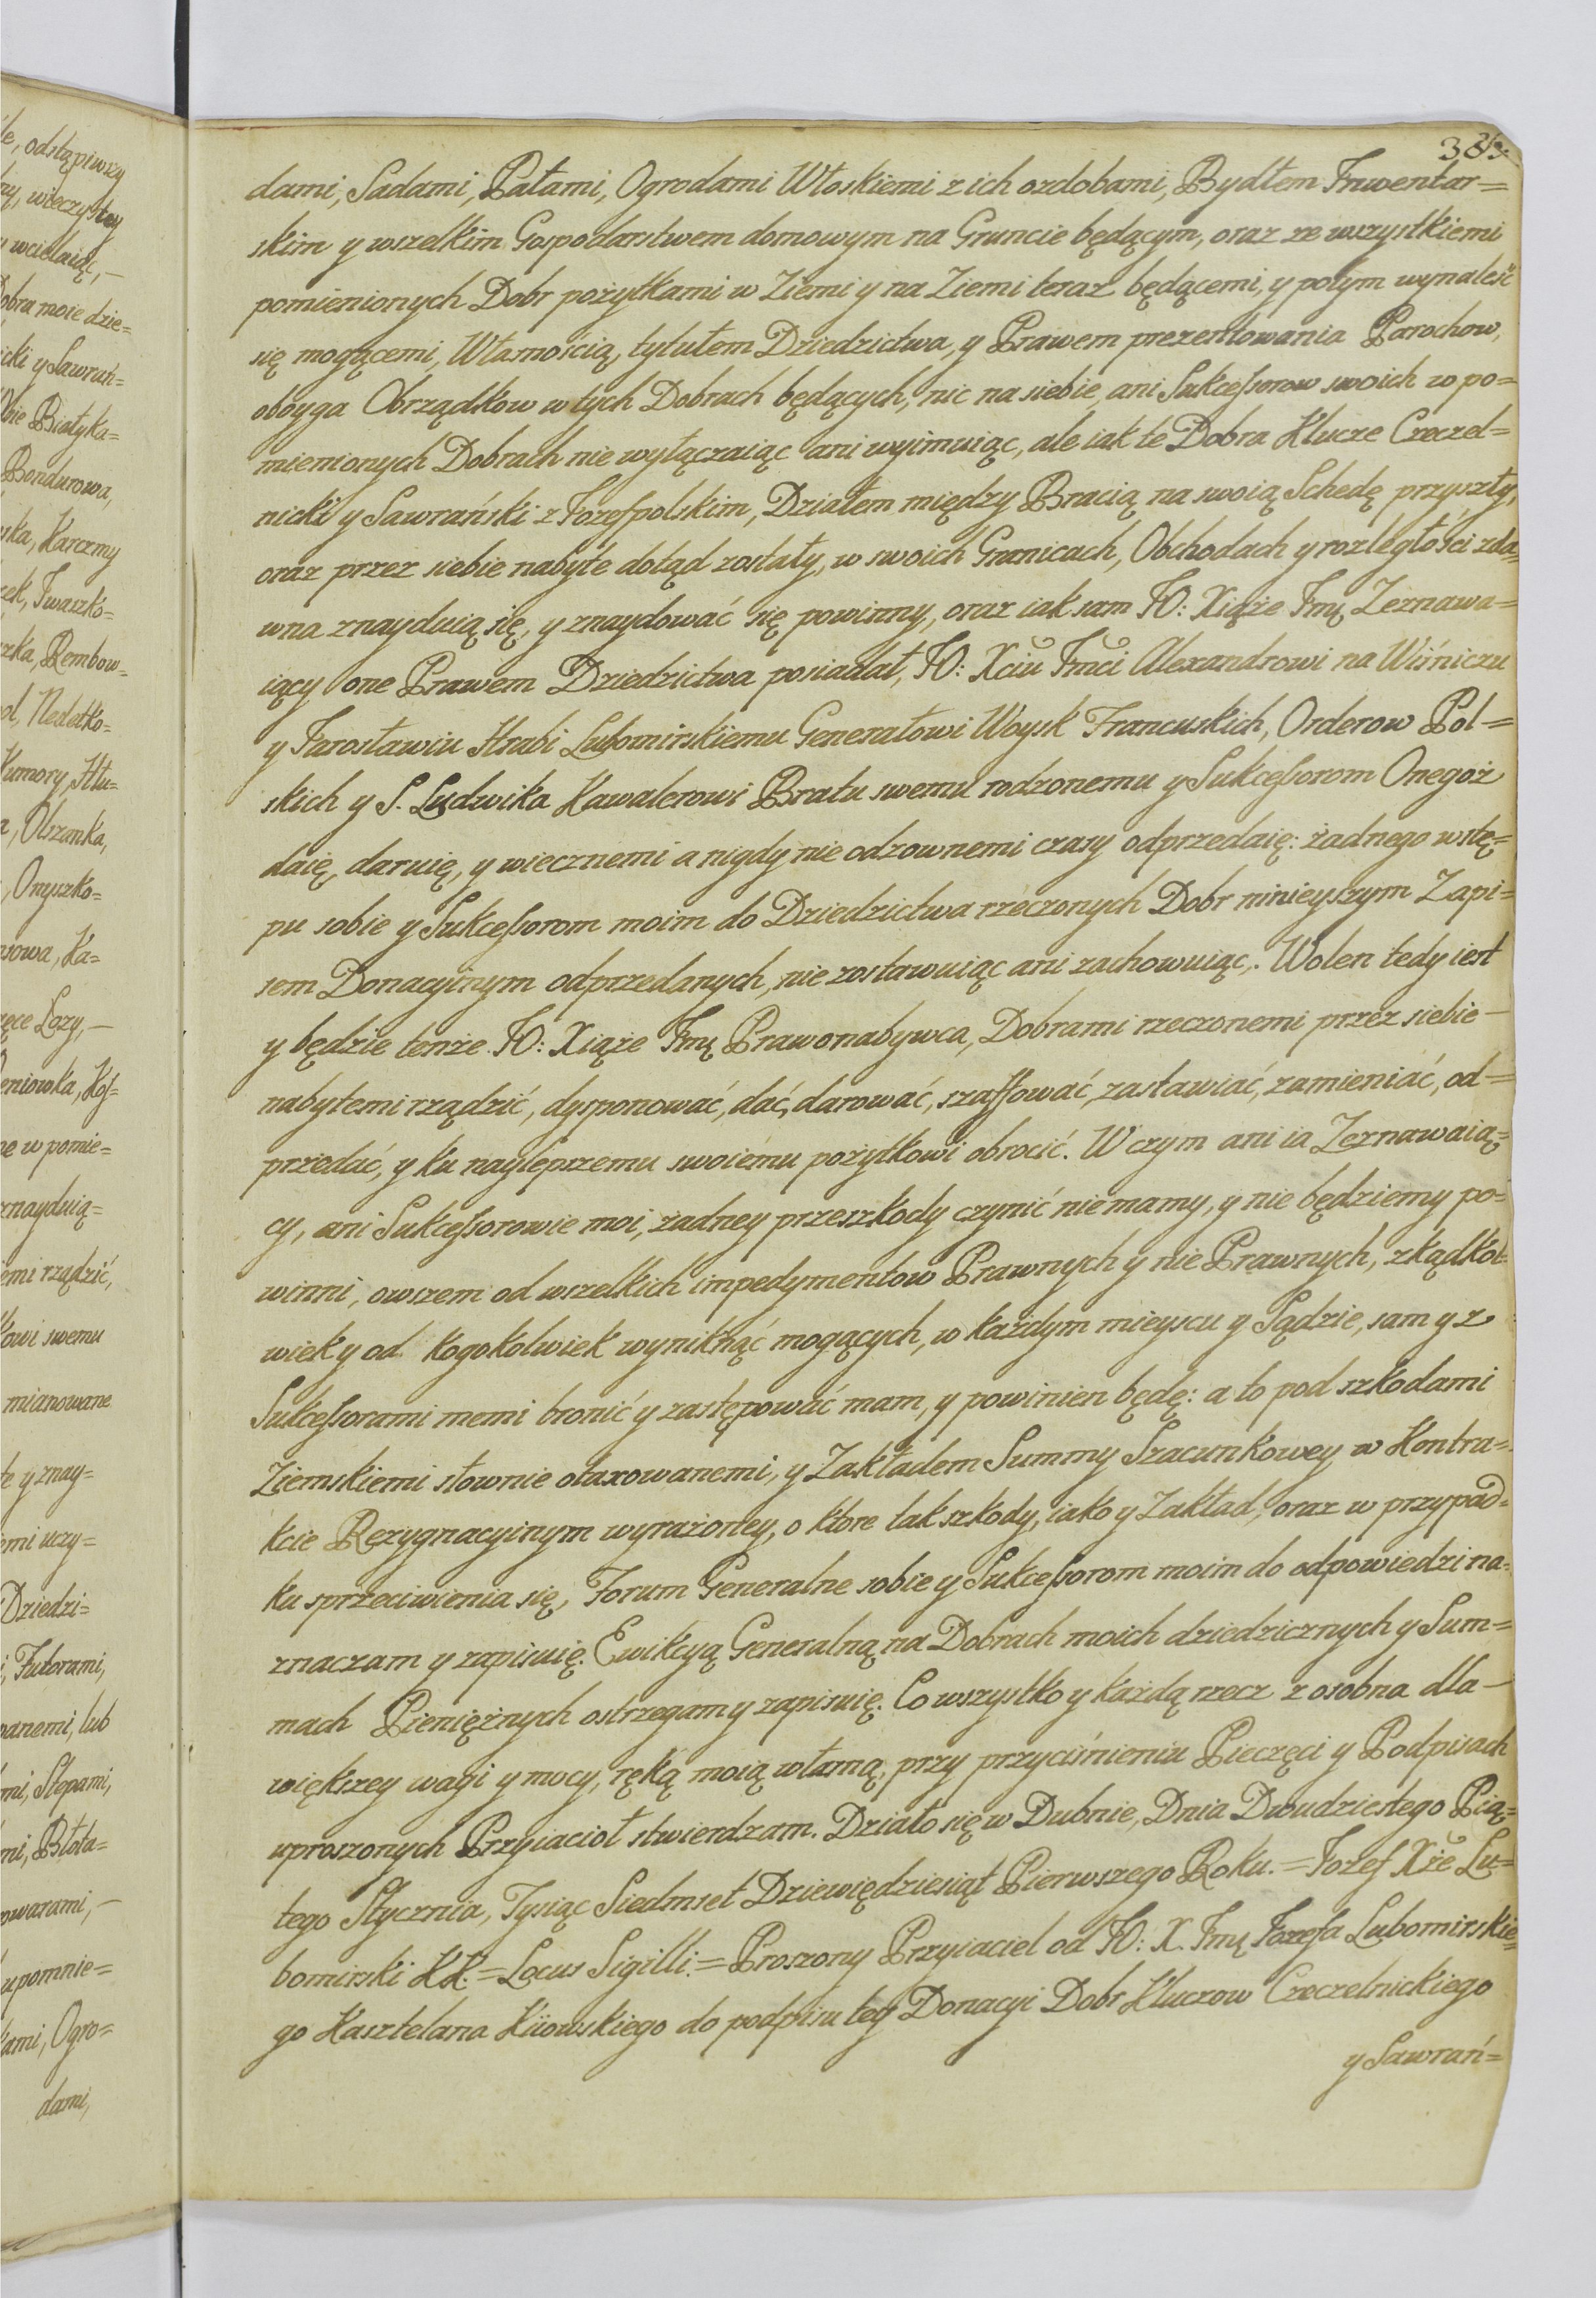 le, odstąpiwszy
ny, wieczystey
y wcielaiąc, —
Dobra moie dzie=
icki y Sawrań=
bie Białyka=
Bondurowa,
ska, Karczmy
zek, Iwaszko=
zka, Rembow=
ol, Nedełko=
Kumory, Hłu=
a, Olszanka,
, Onyszko=
asowa, Ka=
ęce Łozy, —
eniowka, Kos=
ne w pomie=
znayduią=
emi rządzić,
kowi swemu
mianowane
te y znay=
emi uczy=
Dziedzi=
i, Futorami,
panemi, lub
mi, Stepami,
mi, Błota=
owarami, —
upomnie=
kami, Ogro=
dami,
385.
dami, Sadami, Pałami, Ogrodami Włoskiemi z ich ozdobami, Bydłem Inwentar=
skim y wszelkim Gospodarstwem domowym na Gruncie będącym, oraz ze wszystkiemi
pomienionych Dobr pożytkami w Ziemi y na Ziemi teraz będącemi, y potym wynaleść
się mogącemi, Własnością, tytułem Dziedzictwa, y Prawem prezentowania Parochow,
oboyga Obrządkow w tych Dobrach będących, nic na siebie, ani Sukcessorow swoich w po=
mienionych Dobrach nie wyłączaiąc ani wyimuiąc, ale iak te Dobra Klucze Czeczel=
nicki y Sawrański z Jozefpolskim, Działem między Bracią na swoią Schedę przyszły,
oraz przez siebie nabyte dotąd zostały, w swoich Granicach, Obchodach y rozległości zda=
wna znayduią się, y znaydować się powinny, oraz iak sam JO: Xiąże Jmę Zeznawa=
iący one Prawem Dziedzictwa posiadał, JO: Xciu Jmci Alexandrowi na Wiśniczu
y Jarosławiu Hrabi Lubomirskiemu Generałowi Woysk Francuskich, Orderow Pol=
skich y S. Ludwika Kawalerowi Bratu swemu rodzonemu y Sukcessorom Onegoż
daię, daruię, y wiecznemi a nigdy nie odzownemi czasy odprzedaię: żadnego wstę=
pu sobie y Sukcessorom moim do Dziedzictwa rzeczonych Dobr ninieyszym Zapi=
sem Donacyinym odprzedanych, nie zostawuiąc ani zachowuiąc. Wolen tedy iest
y będzie tenże JO: Xiąże Jmę Prawonabywca, Dobrami rzeczonemi przez siebie —
nabytemi rządzić, dysponować, dać, darować, szaffować, zastawiać, zamieniać, od=
przedać, y ku naylepszemu swoiemu pożytkowi obrocić. W czym ani ia Zeznawaią=
cy, ani Sukcessorowie moi, żadney przeszkody czynić nie mamy, y nie będziemy po=
winni, owszem od wszelkich impedymentow Prawnych y nie Prawnych, zkądkol=
wiek y od kogokolwiek wyniknąć mogących, w każdym mieyscu y Sądzie, sam y z
Sukcessorami memi bronić y zastępować mam, y powinien będę: a to pod szkodami
Ziemskiemi słownie otaxowanemi, y Zakładem Summy Szacunkowey w Kontra=
kcie Rezygnacyinym wyrażoney, o ktore tak szkody, iako y Zakład, oraz w przypad=
ku sprzeciwienia się, Forum Generalne sobie y Sukcessorom moim do odpowiedzi na=
znaczam y zapisuię. Ewikcyą Generalną na Dobrach moich dziedzicznych y Sum=
mach Pieniężnych ostrzegam y zapisuię. Co wszystko y każdą rzecz z osobna dla —
większey wagi y mocy, ręką moią własną, przy przyciśnieniu Pieczęci y Podpisach
uproszonych Przyiacioł stwierdzam. Działo się w Dubnie, Dnia Dwudziestego Pią=
tego Stycznia, Tysiąc Siedmset Dziewiędziesiąt Pierwszego Roku. = Jozef Xże Lu=
bomirski KK. = Locus Sigilli. = Proszony Przyiaciel od JO: X. Jmę Jozefa Lubomirskie=
go Kasztelana Kiiowskiego do podpisu tey Donacyi Dobr Kluczow Czeczelnickiego
y Sawrań=